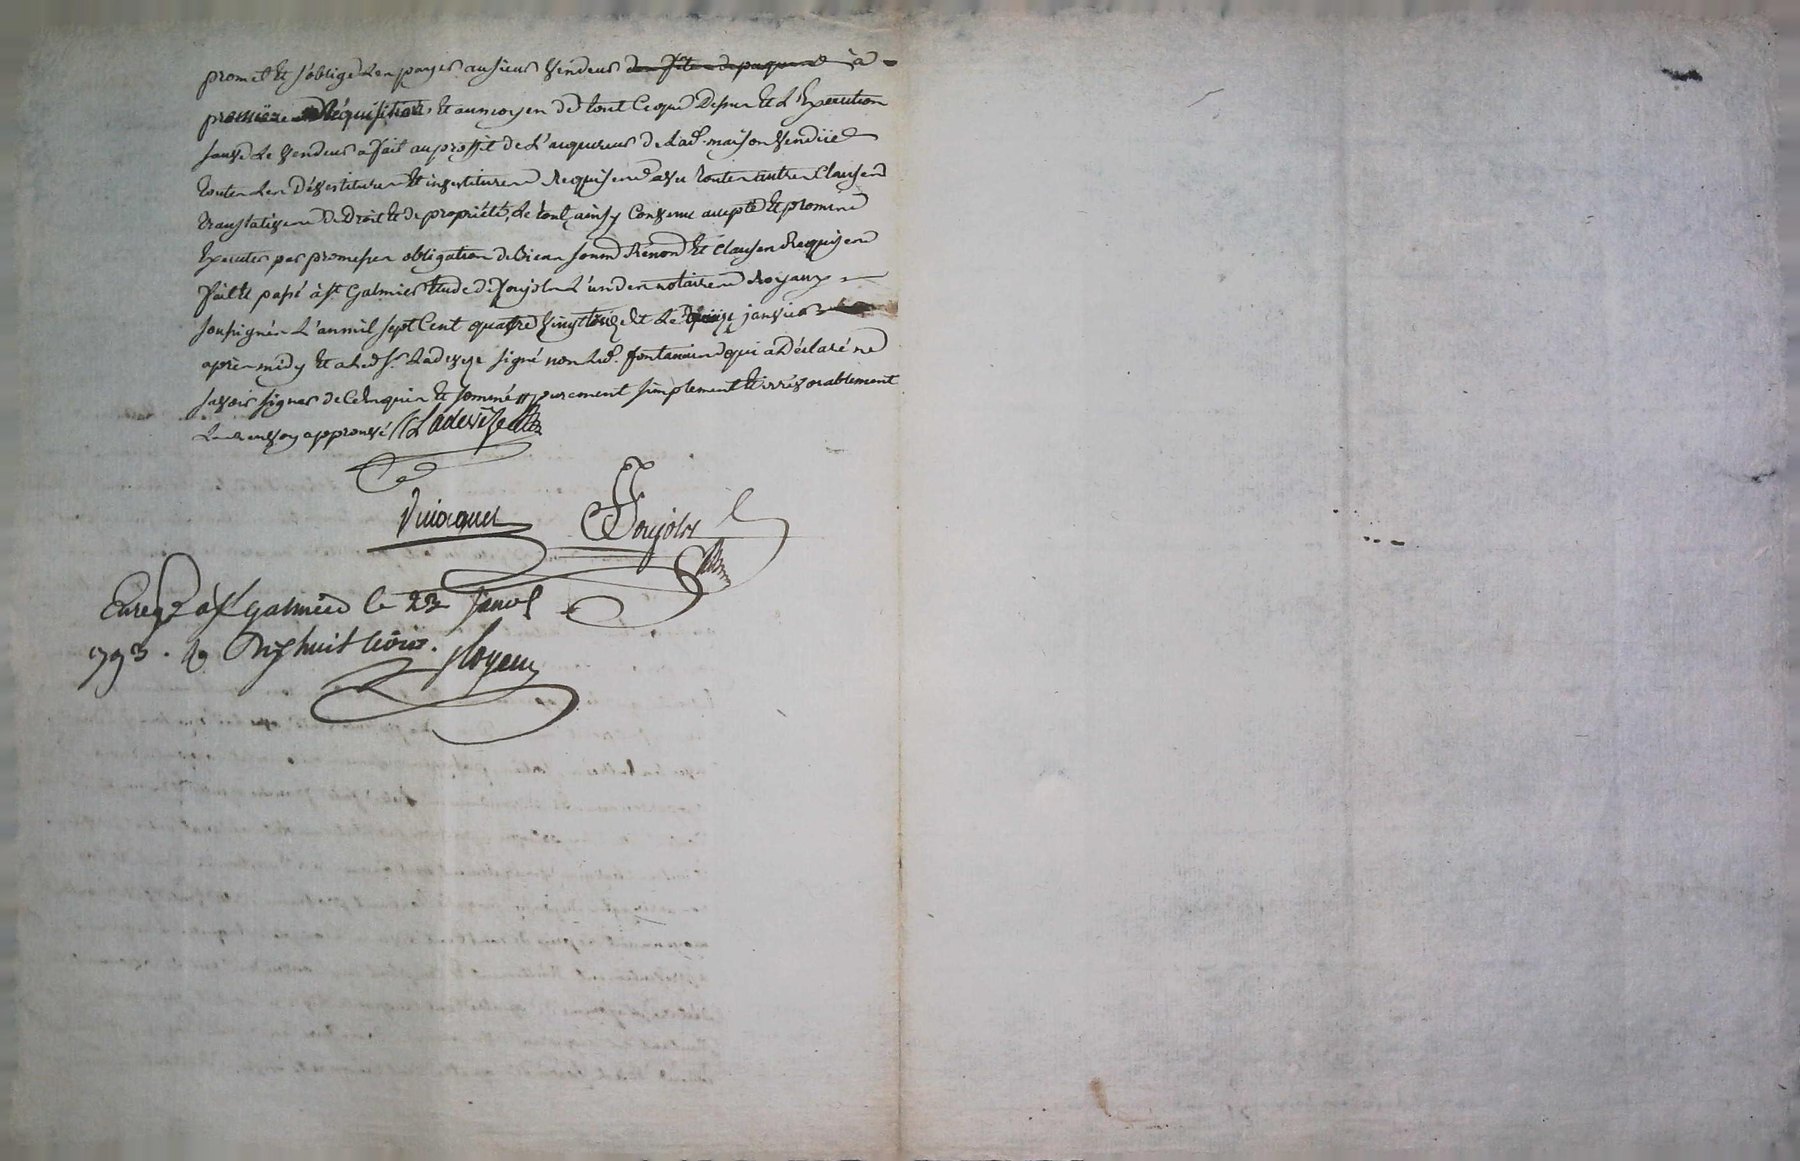 promet et s'oblige d'en payer au sieur vendeur des fêtes de paques à
première Réquisition et aumoyen de tout Ceque Dessus et L'Execution
sauve Le vendeur a fait au proffit de L'acquereur de Lad. maison vendüe
toutes Les Dévestitures et investitures Requises avec toutes autres Clauses
translatives De Droit et de propriété, Le tout ainsy Convenu accepté et promis
Executer par promesses obligation de Biens soum Rénon et Clauses Requises
fait et passé à st Galmier Etude de Soujols L'un des notaires Royaux
soussignés L'an mil sept Cent quatre vingt treize et Le janvier
après midy et a Led. Sr. Ladeveze signé non Led. fontanier qui a Déclaré ne
savoir signer de Ce Enquis et sommé # purement simplement et irrévocablement
Le renvoy approuvé Ladeveze
Soujols
Enregé à st galmier le 23 Janvr
1793. Rç Dix huit Livres.